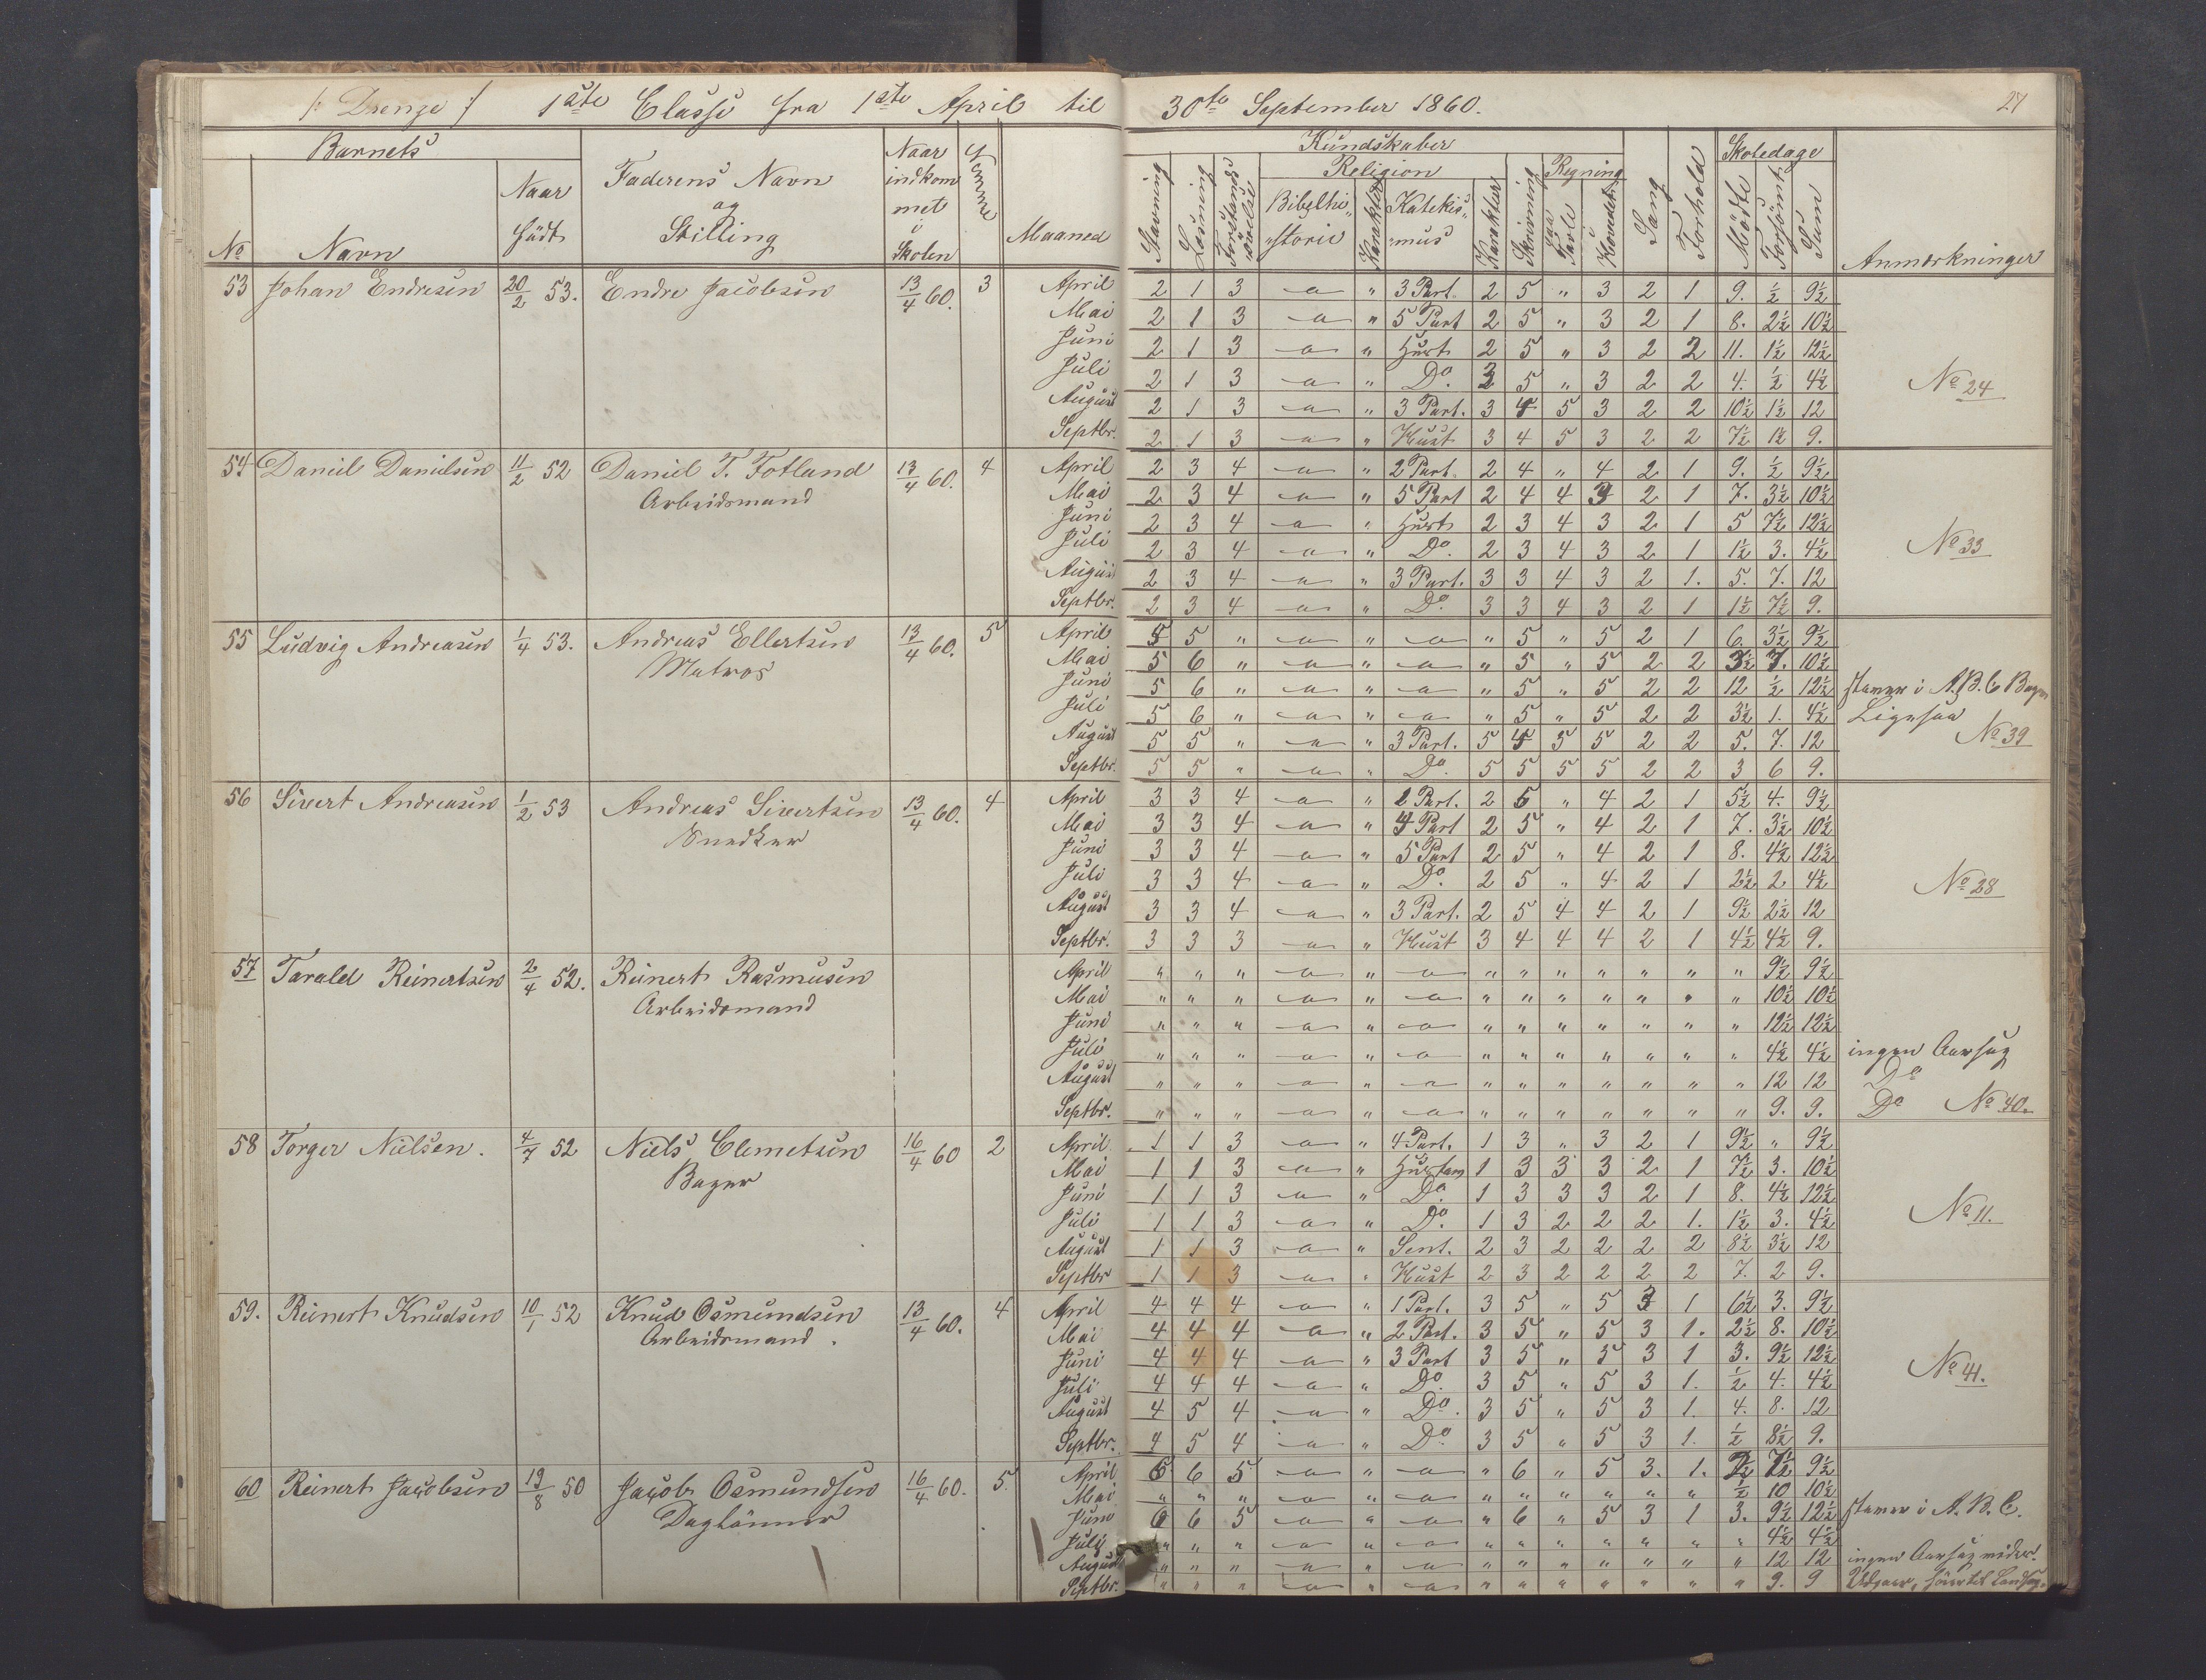 /: Drenge :/ 1ste Classe fra 1ste April til 30te September 1860. 27
Barnets
No Navn Naar födt Faderens Navn og Stilling Naar indkommet i Skolen Maaned
Kundskaber
Stavning Læsning Forstands övelse Religion Bibelhistorie Karakter Katekismus Karakter Skrivning Regning paa Tavle i Hovedet Sang Forhold Skoledage Mödte Forsömt Sum Anmærkninger
53 Johan Endresen 20/2 53. Endre Jacobsen 13/4 60. 3
April 2 1 3 " 3 Part. 2 5 " 3 2 1 9. ½ 9½
Mai 2 1 3 " 5 Part 2 5 " 3 2 1 8. 2½ 10½
Juni 2 1 3 " Hust 2 5 " 3 2 2 11. 1½ 12½
Juli 2 1 3 " Do. 3 5 " 3 2 2 4. ½ 4½
August 2 1 3 " 3 Part. 3 4 5 3 2 2 10½ 1½ 12
Septbr. 2 1 3 " Hust 3 4 5 3 2 2 7½ 1½ 9.
No 24
54 Daniel Danielsen 11/2 52 Daniel T. Fotland Arbeidsmand 13/4 60. 4
April 2 3 4 " 2 Part. 2 4 " 4 2 1 9. ½ 9½
Mai 2 3 4 " 5 Part 2 4 4 3 2 1 7. 3½ 10½
Juni 2 3 4 " Hust 2 3 4 3 2 1 5 7½ 12½
Juli 2 3 4 " Do. 2 3 4 3 2 1 1½ 3. 4½
August 2 3 4 " 3 Part. 3 3 4 3 2 1. 5. 7. 12
Septbr. 2 3 4 " Do. 3 3 4 3 2 1 1½ 7½ 9.
No 33
55 Ludvig Andreasen 1/4 53. Andreas Ellertsen Matros 13/4 60. 5
April 5 5 " " " 5 " 5 2 1 6 3½ 9½
Mai 5 6 " " " 5 " 5 2 2 3½ 7. 10½
Juni 5 6 " " " 5 " 5 2 2 12 ½ 12½ staver i A.B.C Bogen
Juli 5 6 " " " 5 " 5 2 2 3½ 1. 4½ Ligesaa
August 5 5 " " 3 Part. 5 4 5 5 2 2 5. 7. 12 No 39
Septbr. 5 5 " " Do. 5 5 5 5 2 2 3 6 9.
56 Sivert Andreasen 1/2 53 Andreas Sivertsen Snedker 13/4 60. 4
April 3 3 4 " 2 Part. 2 5 " 4 2 1 5½ 4. 9½
Mai 3 3 4 " 4 Part 2 5 " 4 2 1 7. 3½ 10½
Juni 3 3 4 " 5 Part 2 5 " 4 2 1 8. 4½ 12½
Juli 3 3 4 " Do. 2 5 " 4 2 1 2½ 2 4½
August 3 3 4 " 3 Part. 2 5 4 4 2 1 9½ 2½ 12
Septbr. 3 3 3 " Hust 3 4 4 4 2 1 4½ 4½ 9.
No 28
57 Tarald Reinertsen 2/4 52. Reinert Rasmusen Arbeidsmand
April " " " " " " " " " " " 9½ 9½
Mai " " " " " " " " " " " 10½ 10½
Juni " " " " " " " " " " " 12½ 12½
Juli " " " " " " " " " " " 4½ 4½ ingen Aarsag
August " " " " " " " " " " " 12 12 Do
Septbr. " " " " " " " " " " " 9. 9. Do No 40.
58 Torger Nielsen. 4/7 52 Niels Clemetsen Bager 16/4 60 2
April 1 1 3 " 4 Part. 1 3 " 3 2 1 9½ " 9½
Mai 1 1 3 " 1 3 3 3 2 1 7½ 3. 10½
Juni 1 1 3 " Do. 1 3 3 3 2 1 8. 4½ 12½
Juli 1 1 3 " Do. 1 3 2 2 2 1. 1½ 3. 4½
August 1 1 3 " Sent. 2 3 2 2 2 2 8½ 3½ 12
Septbr 1 1 3 " Hust 2 3 2 2 2 2 7. 2 9.
No 11.
59. Reinert Knudsen 10/1 52 Knud Osmundsen Arbeidsmand. 13/4 60. 4
April 4 4 4 " 1 Part. 3 5 " 5 3 1 6½ 3. 9½
Mai 4 4 4 " 2 Part. 3 5 " 5 3 1. 2½ 8. 10½
Juni 4 4 4 " 3 Part 3 5 " 5 3 1 3. 9½ 12½
Juli 4 4 4 " Do. 3 5 " 5 3 1. ½ 4. 4½
August 4 5 4 " Do. 3 5 " 5 3 1. 4. 8. 12
Septbr. 4 5 4 " Do 3 5 " 5 3 1. ½ 8½ 9.
No 41.
60 Reinert Jacobsen 19/8 50 Jacob Osmundsen Daglönner 16/4 60. 5.
April 6 6 5 " " 6 " 5 3. 1. 7½ 9½
Mai " " " " " " " " " " ½ 10 10½
Juni 6 6 5 " " 6 " 5 3 1 3. 9½ 12½ staver i A.B.C.
Juli " " " " " " " " " " " 4½ 4½
August " " " " " " " " " " " 12 12 ingen Aarsag
Septbr. " " " " " " " " " " " 9. 9